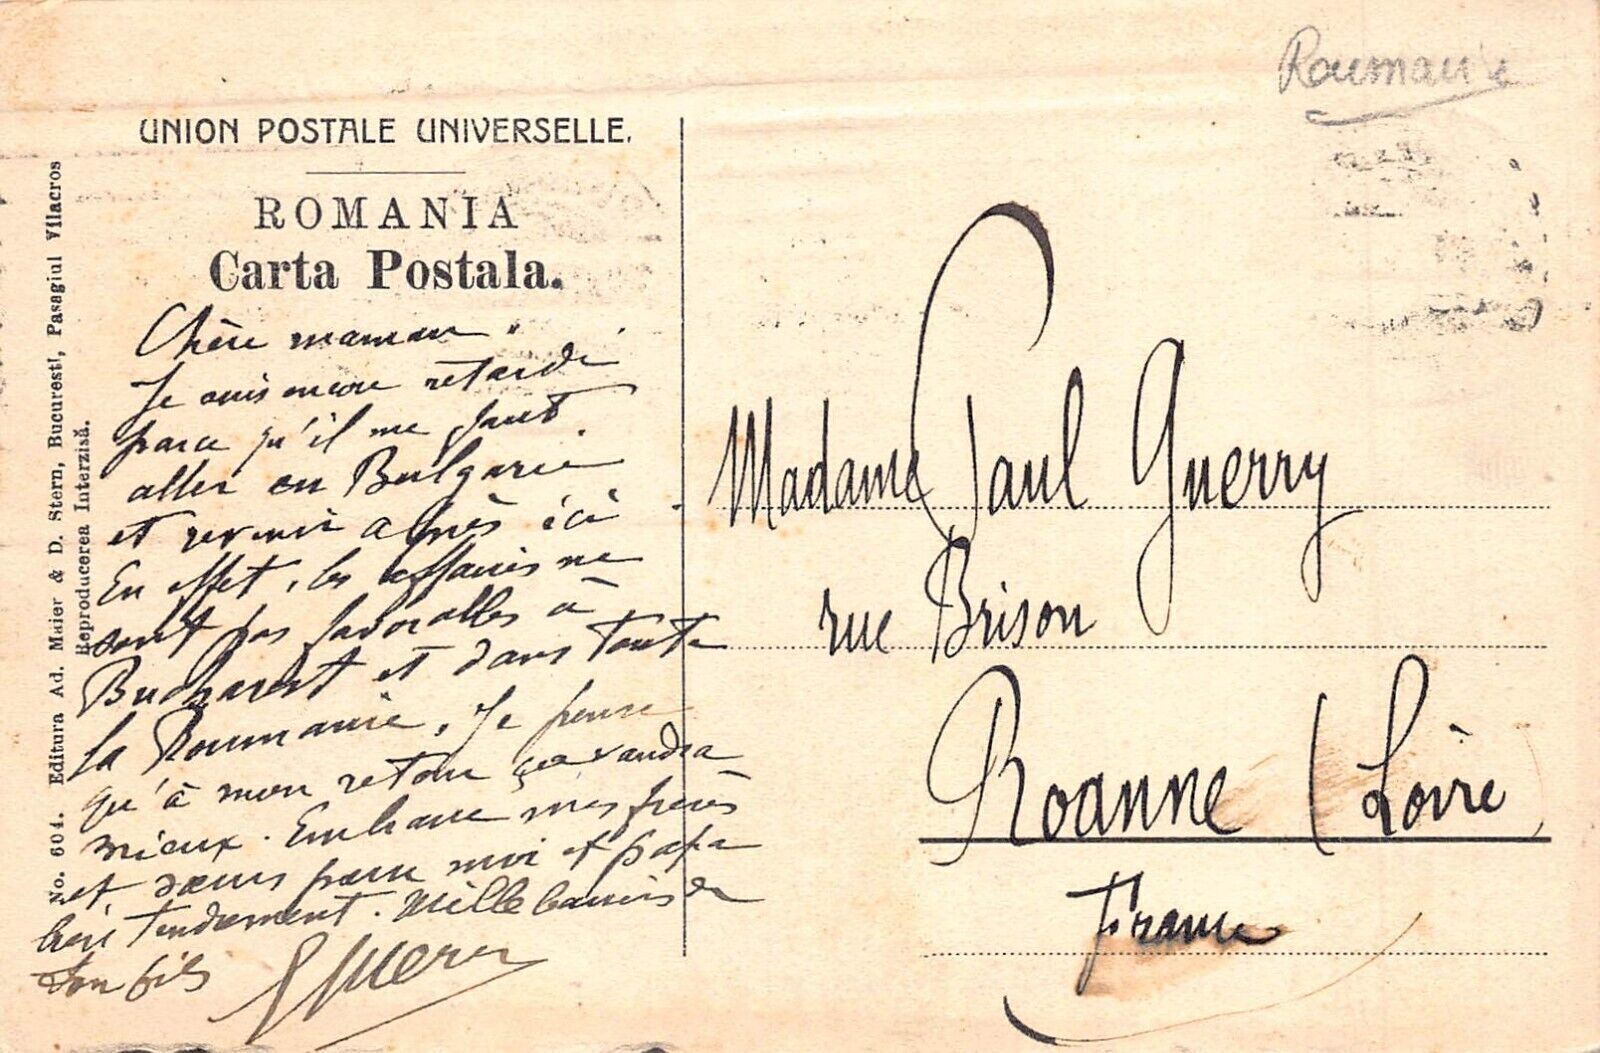 Roumanie
UNION POSTALE UNIVERSELLE.
ROMANIA
Carta Postala.
No. 604. Editura Ad. Maier & D. Stern, Bucuresti, Pasagiul Vilacros
Reproducerea Interzisă.
Chère maman.
Je suis encore retardé
parce qu'il me faut
aller en Bulgarie
et revenir après ici.
En effet, les affaires ne
sont pas favorables à
Bucharest et dans toute
la Roumanie. Je pense
qu'à mon retour ça vaudra
mieux. Embrasse mes frères
et sœurs pour moi et papa
bien tendrement. Mille baisers de
ton fils
Guerry
Madame Paul Guerry
rue Brison
Roanne (Loire)
France